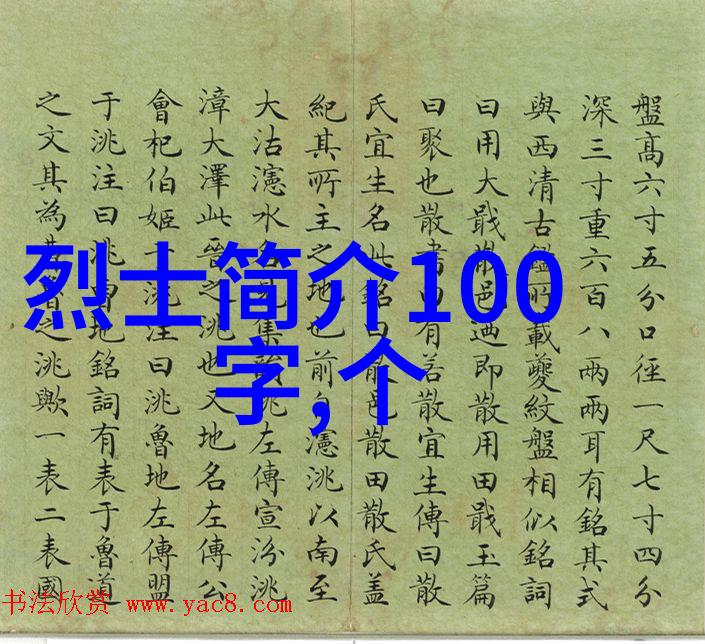 盤高六寸五分口徑一尺七寸四分
深三寸重六百八兩兩耳有銘其式
與西清古鑑所載夔紋盤相似銘詞
曰用大戢散邑迺即散用田戢玉篇
曰聚也散書曰有若散宜生傳曰散
氏宜生名此銘曰散邑散田散氏蓋
紀其所主之地也前自瀗洮以南至
大沽瀗水名見集韻洮左傳宣汾洮
漳大澤此晉之洮也又地名左傳公
會杞伯姬于洮注曰洮魯地左傳盟
于洮注曰洮曹地銘詞有表于魯道
之文其為魯之洮歟一表二表國
烈士简介100
字,个
书法欣赏 www.yac8.com